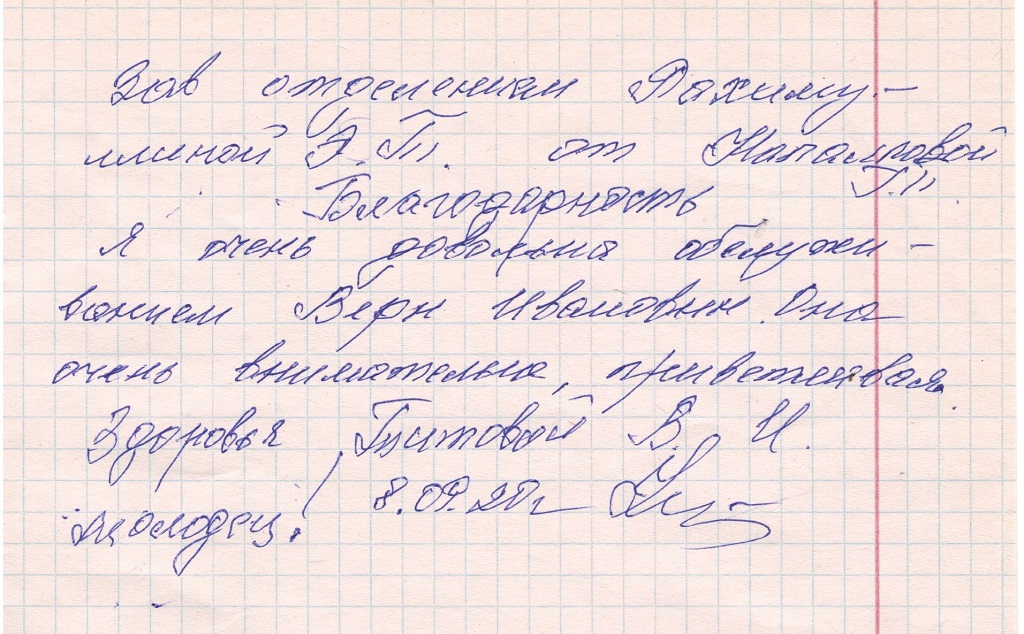 Зав отделением Рахиму-
ллиной Э.Т. от
Г.П
Благодарность
Я очень довольна обслужи-
ванием Веры Ивановны. Она
очень внимательна, приветливая.
Здоровья Титовой В. И.
молодец! 8.09.20г